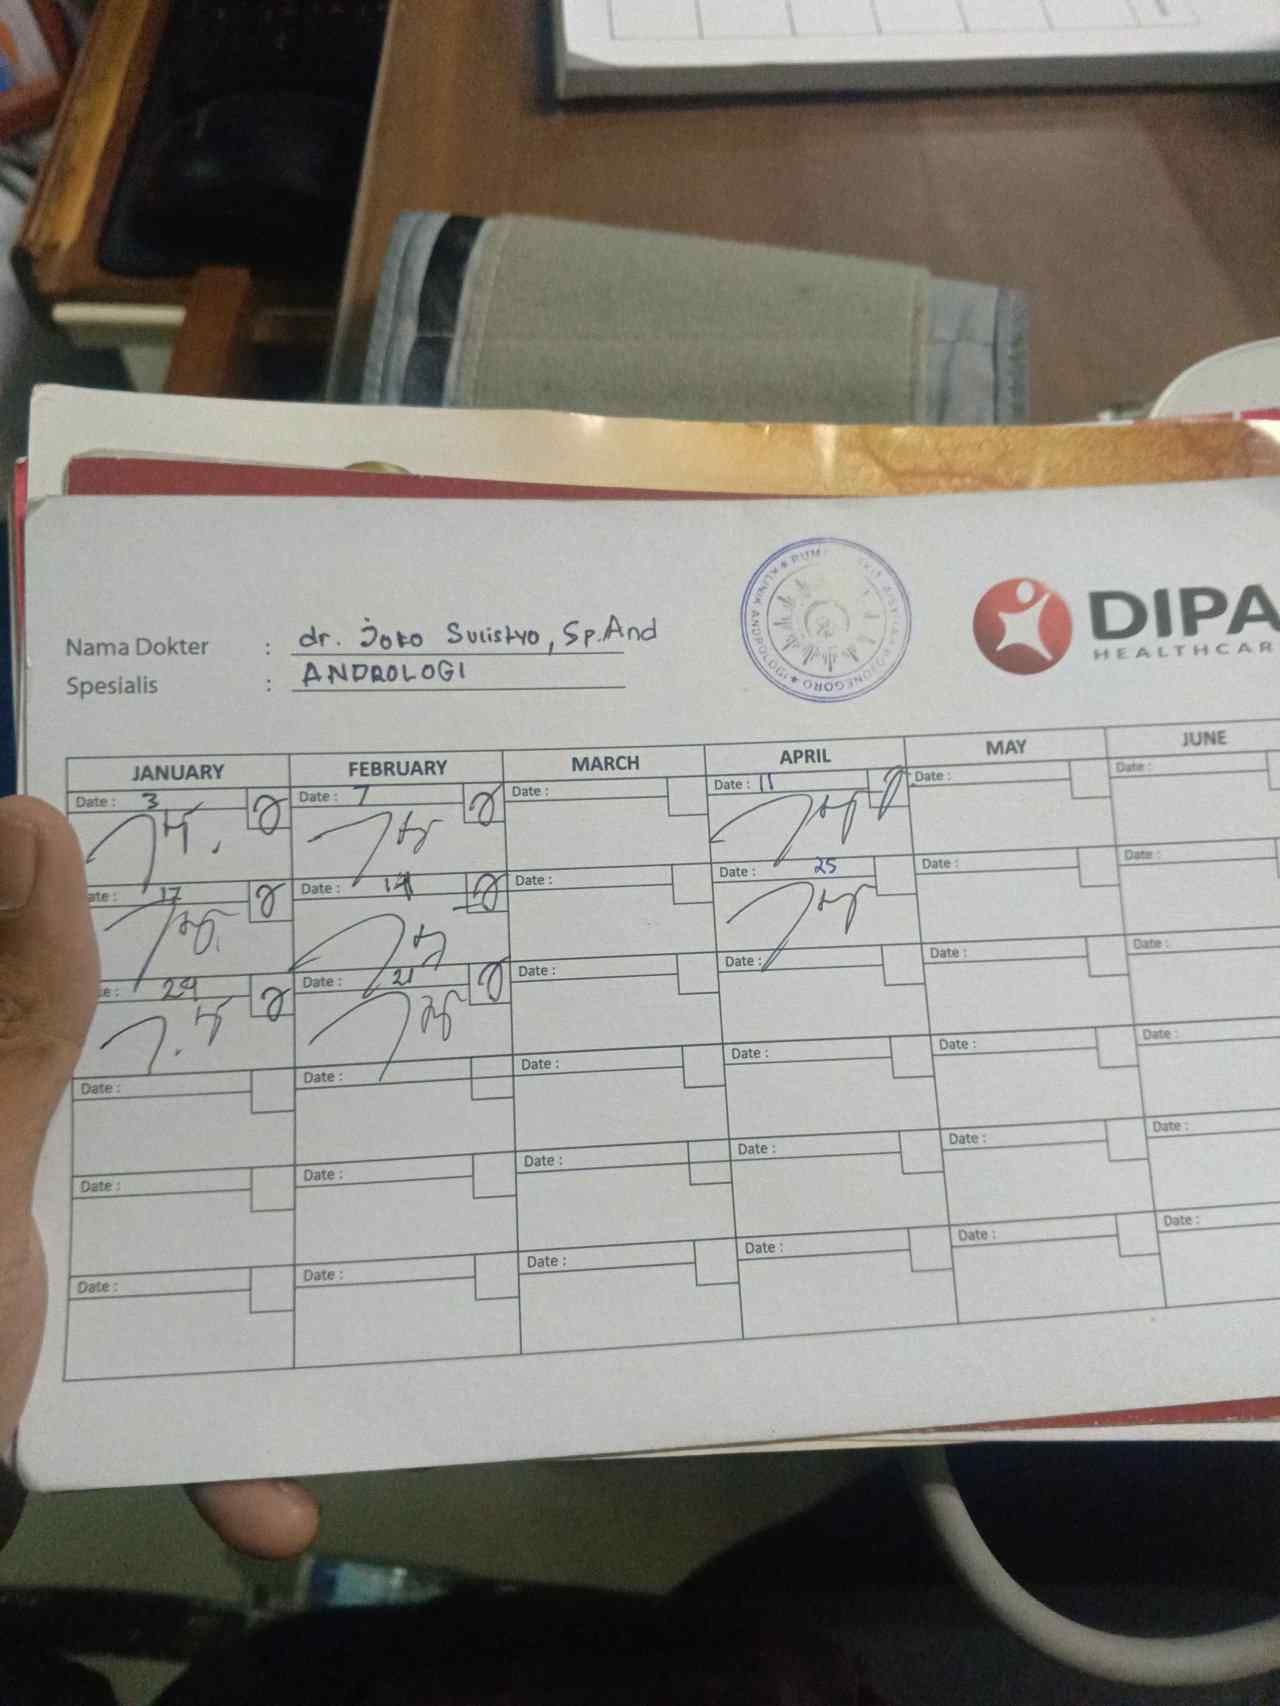 Nama Dokter : dr. Joko Sulistyo, Sp.And
Spesialis : ANDROLOGI
KLINIK ANDROLOGI
BOJONEGORO
DIPA
HEALTHCAR
JANUARY FEBRUARY MARCH APRIL MAY JUNE
Date : 3 Date : 7 Date : Date : 11 Date : Date :
ate : 17 Date : 14 Date : Date : 25 Date : Date :
e : 24 Date : 21 Date : Date : Date : Date :
Date : Date : Date : Date : Date : Date :
Date : Date : Date : Date : Date : Date :
Date : Date : Date : Date : Date : Date :